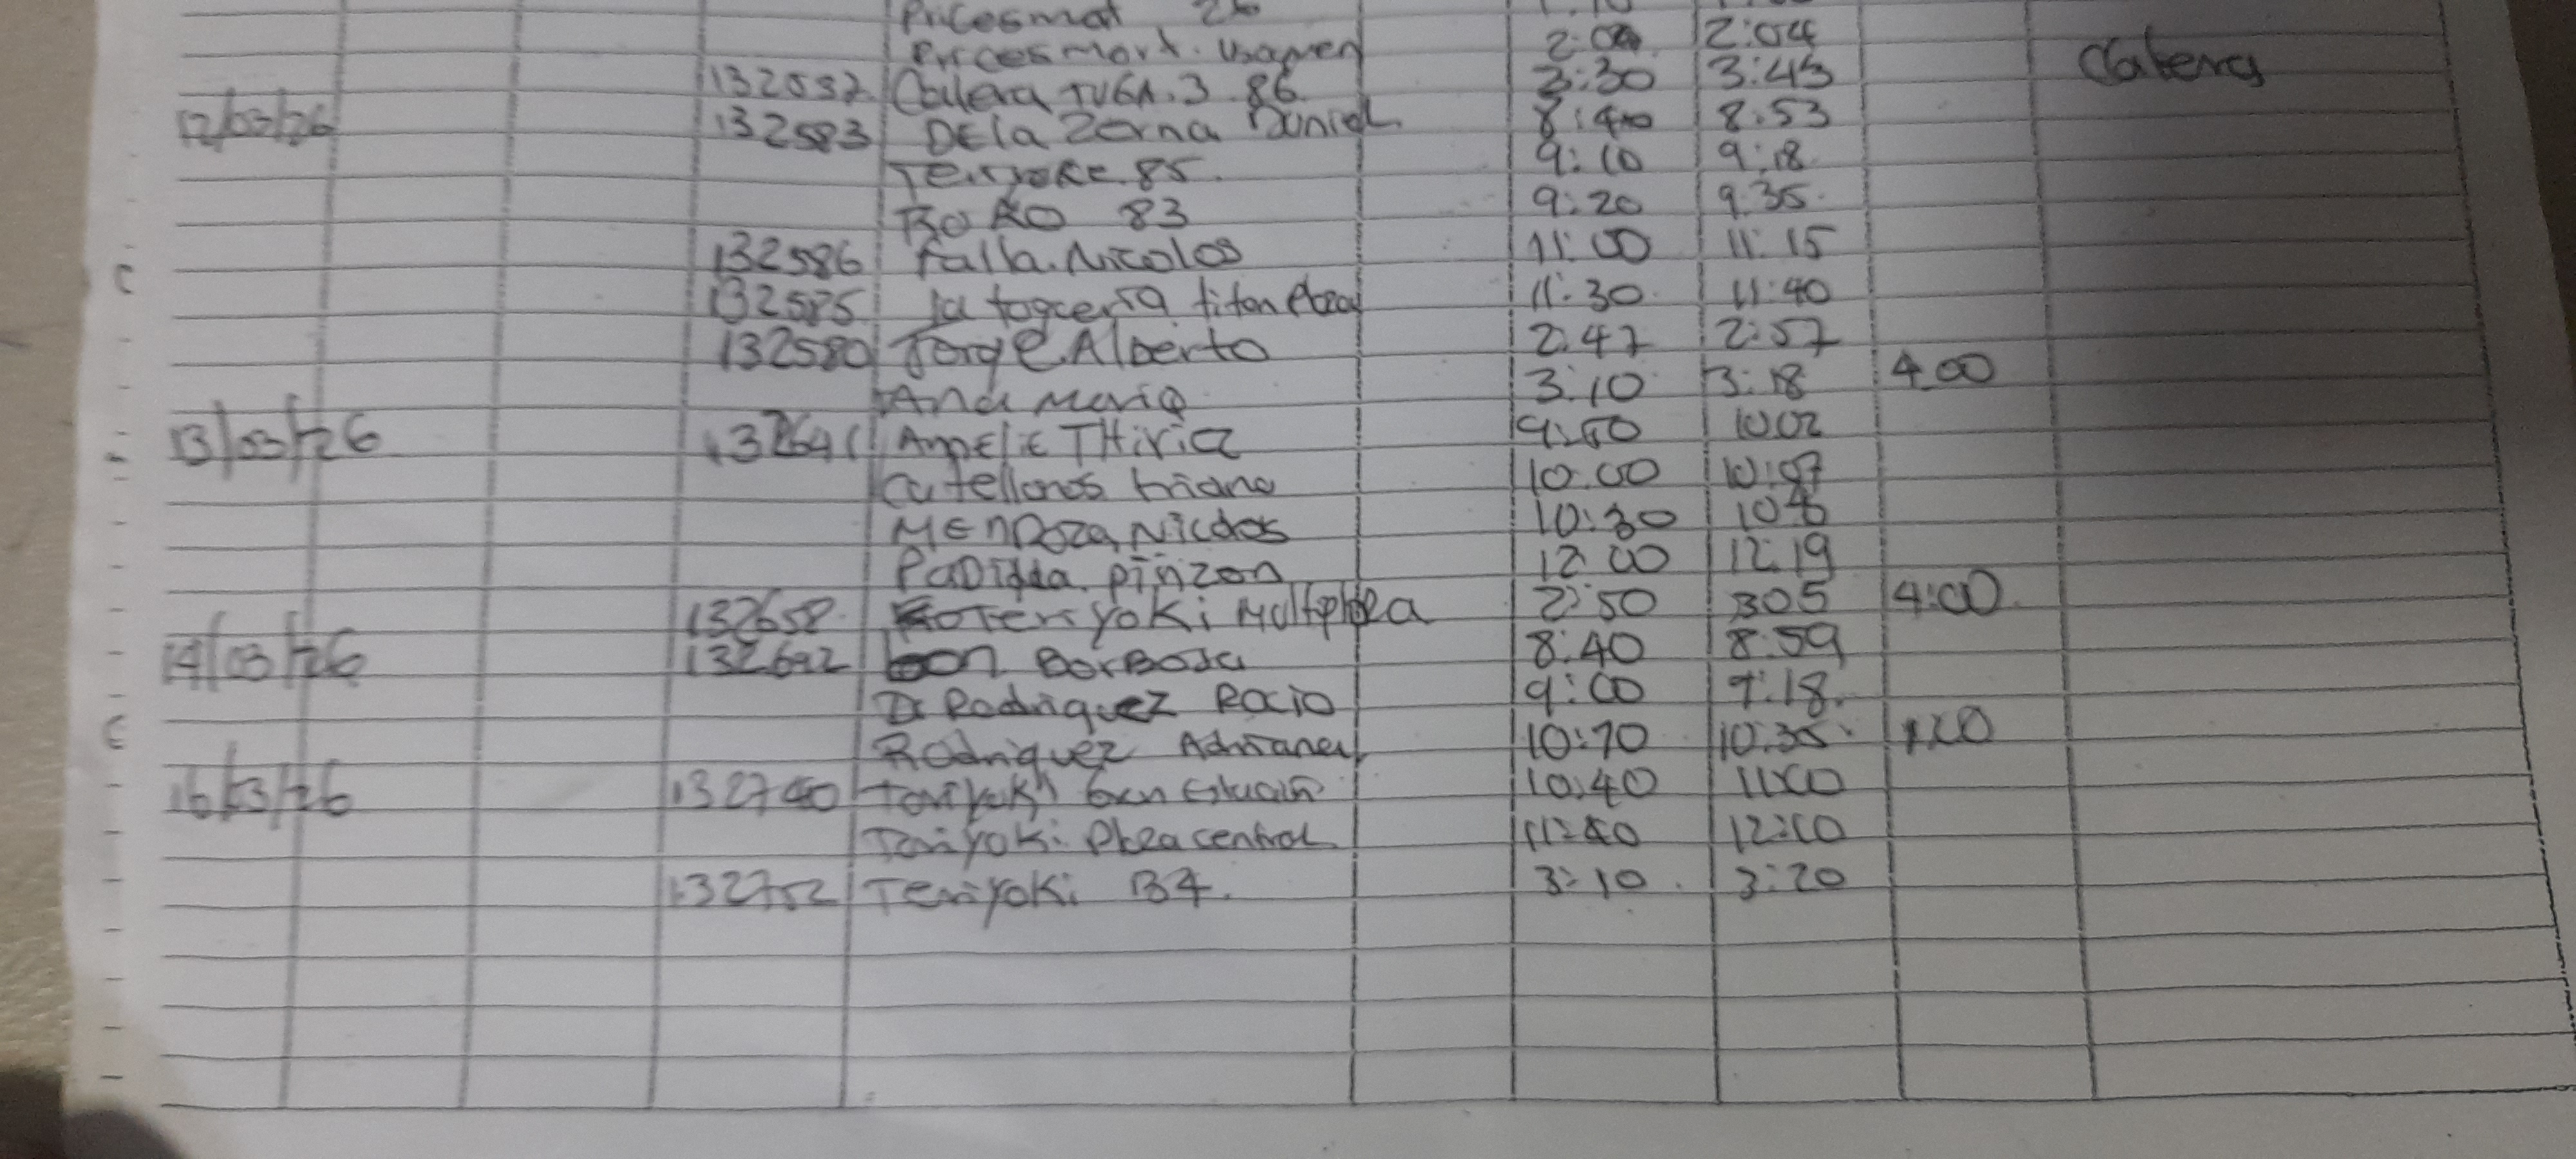 Pricesmat 26
Pricesmart. Usaquen 2:00 2:04
132532 Calera TUGA.3 86 3:30 3:43 Calera
12/03/26 132583 DEla Zerna Daniel 8:40 8:53
Teriyoke 85. 9:10 9:18
BoRO 83 9:20 9.35.
132586 Falla.Nicolos 11:00 11:15
132585 la toqueria titon Plaza 11:30 11:40
132580 Jorge.Alberto 2:47 2:57
Ana Maria 3:10 3:18 4.00
13/03/26 132641 AmELiE THiria 9:50 1002
Catellanos triana 10:00 10:07
MEnDoza, Nicolos 10:30
PaDilla. pinzon 12:00 12:19
132658 Teriyoki Multiplaza 2:50 305 4:00
14/03/26 132692 BorBosa 8:40 8:59
Rodriguez Rocio 9:00 9:18.
Rodriguez Adriana 10:10 10:35
16/03/26 132740 Teriyoki Gran Estacion 10:40 11:00
Teriyoki Plaza central 11:40 12:00
132752 Teriyoki B4. 3:10 3:20